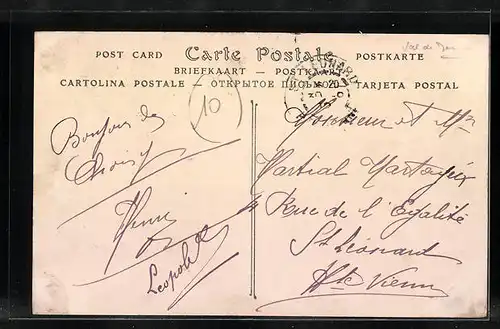 Val de
POST CARD Carte Postale POSTKARTE
BRIEFKAART — POSTKAART
CARTOLINA POSTALE — ОТКРЫТОЕ ПИСЬМО TARJETA POSTAL
10
Bonjour de
Choisy
Henri
Leopold
Monsieur et Mme
Martial
4 Rue de l'Egalité
St Léonard
Hte Vienne